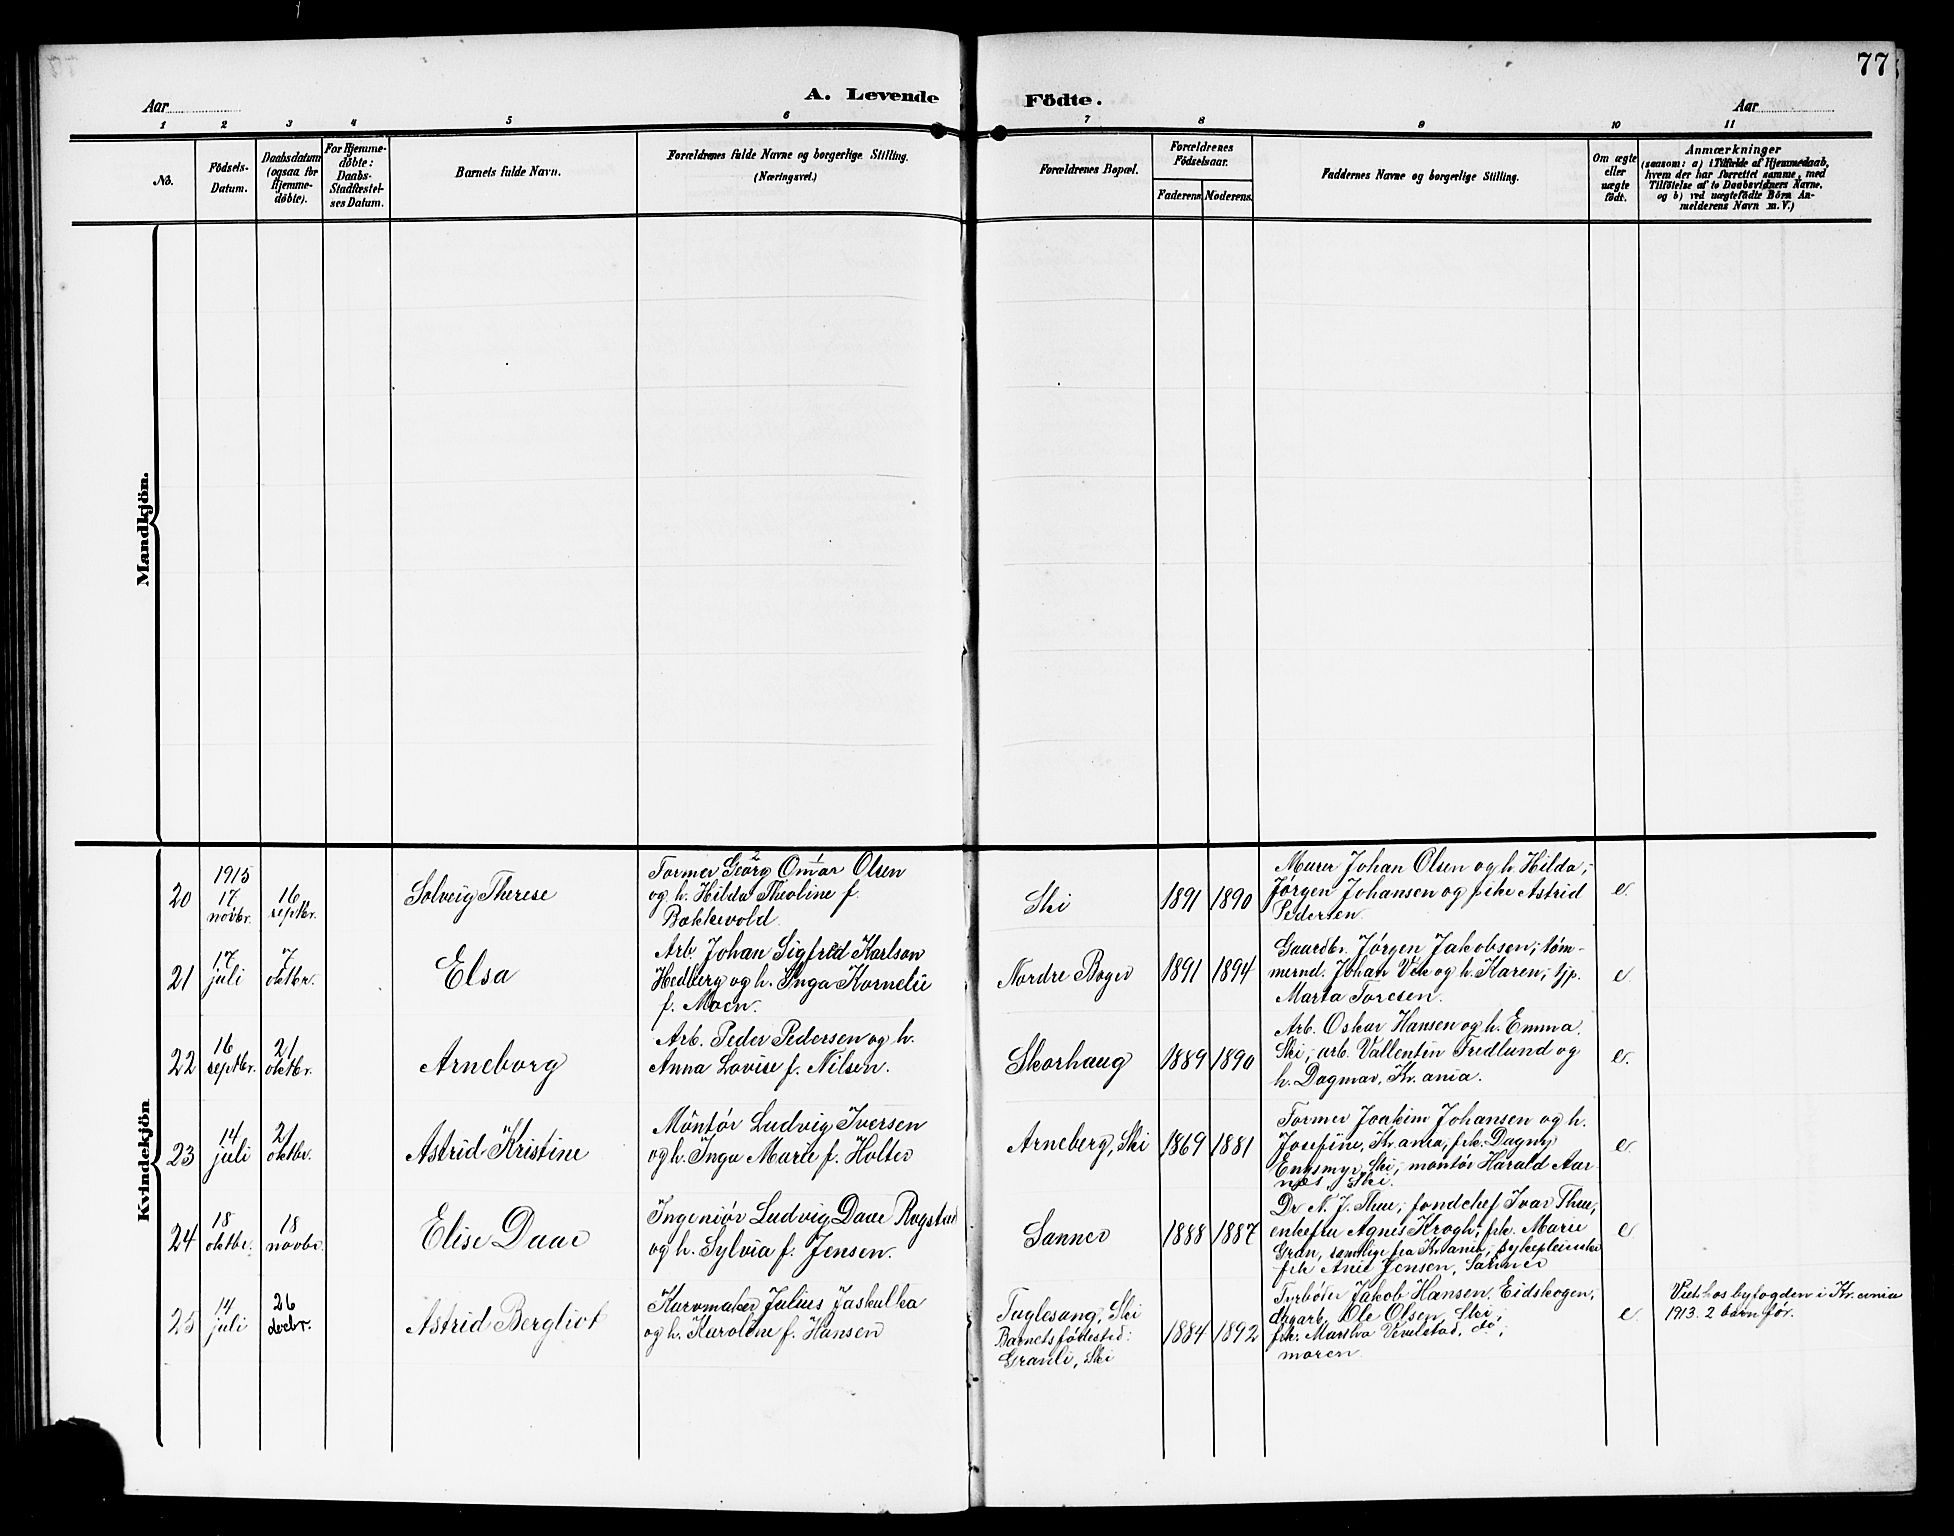 77
A. Levende Födte.
Aar
Aar
1 2 3 4 5 6 7 8 9 10 11
No.
Födsels-
Datum.
Daabsdatum
(ogsaa for
Hjemme-
døbte).
For Hjemme-
døbte:
Daabs-
Stadfæstel-
ses Datum.
Barnets fulde Navn.
Forældrenes fulde Navne og borgerlige Stilling.
(Næringsvei.)
Forældrenes Bopæl.
Forældrenes
Fødselsaar.
Faderens. Moderens.
Faddernes Navne og borgerlige Stilling.
Om ægte
eller
uægte
født.
Anmærkninger
(saasom: a) i Tilfælde af Hjemmedaab,
hvem der har forrettet samme, med
Tilføielse af to Daabsvidners Navne,
og b) ved uægtefødte Börn An-
melderens Navn m. V.)
Mandkjön.
Kvindekjön
20
1915
17
novbr.
16
septbr.
Solveig Therese
Former Georg Omar Olsen
og h. Hilda Theoline f.
Bækkevold.
Ski
1891 1890
Murer Johan Olsen og h. Hilda;
Jørgen Johansen og pike Astrid
Pedersen.
e.
21
17
juli
7
oktbr.
Elsa
Arb. Johan Sigfred Karlson
Hedberg og h. Inga Kornelie
f. Moen.
Nordre Boger
1891 1894
Gaardbr. Jørgen Jakobsen; tøm-
mermd. Johan Vik og h. Karen; tjp.
Marta Toresen.
e.
22
16
septbr.
21
oktbr.
Arneborg
Arb. Peder Pedersen og h.
Anna Lovise f. Nilsen.
Skorhaug
1889 1890
Arb. Oskar Hansen og h. Emma.
Ski; arb. Vallentin Fredlund og
h. Dagmar, Kr.ania.
e.
23
14
juli
21
oktbr.
Astrid Kristine
Montør Ludvig Iversen
og h. Inga Marie f. Holter
Arneberg, Ski
1869 1881
Former Joakim Johansen og h.
Josefine, Kr.ania; frk. Dagny
Engsmyr, Ski; montør Harald Aar-
næs, Ski.
e.
24
18
oktbr.
18
novbr.
Elise Daae
Ingeniør Ludvig Daae Rogstad
og h. Sylvia f. Jensen.
Sanner
1888 1887
Dr. N. J. Thue; fondchef Ivar Thue;
enkefru Agnes Krogh; frk. Marie
Gran, samtlige fra Kr.ania; sykepleierske
frk Anie Jensen, Sanner
e
25
14
juli
26
decbr.
Astrid Bergliot
Kurvmaker Julius Jaskulka
og h. Karoline f. Hansen
Fuglesang, Ski
Barnets fødested:
Granli, Ski
1884 1892
Fyrbøter Jakob Hansen, Eidskogen;
dagarb. Ole Olsen, Ski;
frk. Martha Vevelstad, do;
moren.
e.
Viet hos byfogden i Kr.ania
1913. 2 barn før.